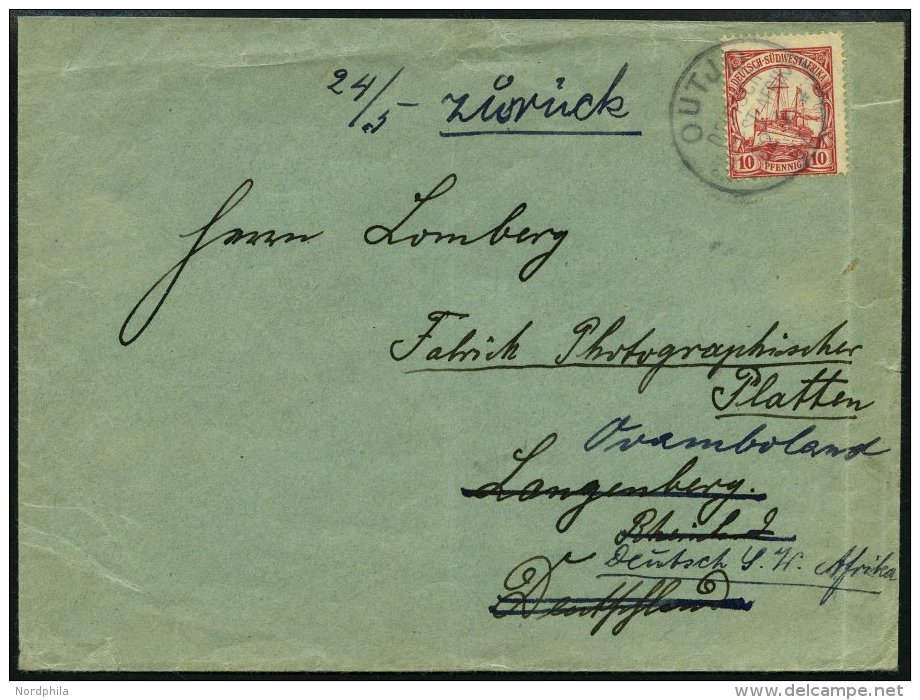 24/5 zurück
DEUTSCH-SÜDWESTAFRIKA
10 PFENNIG 10
Herrn Lomberg
Fabrick Photographischer
Platten
Ovamboland
Langenberg.
Deutsch S. W. Afrika
Deutschland
Nordphila
delcampe.net